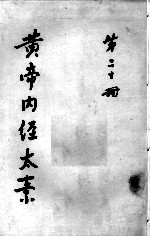 第二十册
黄帝内经太素